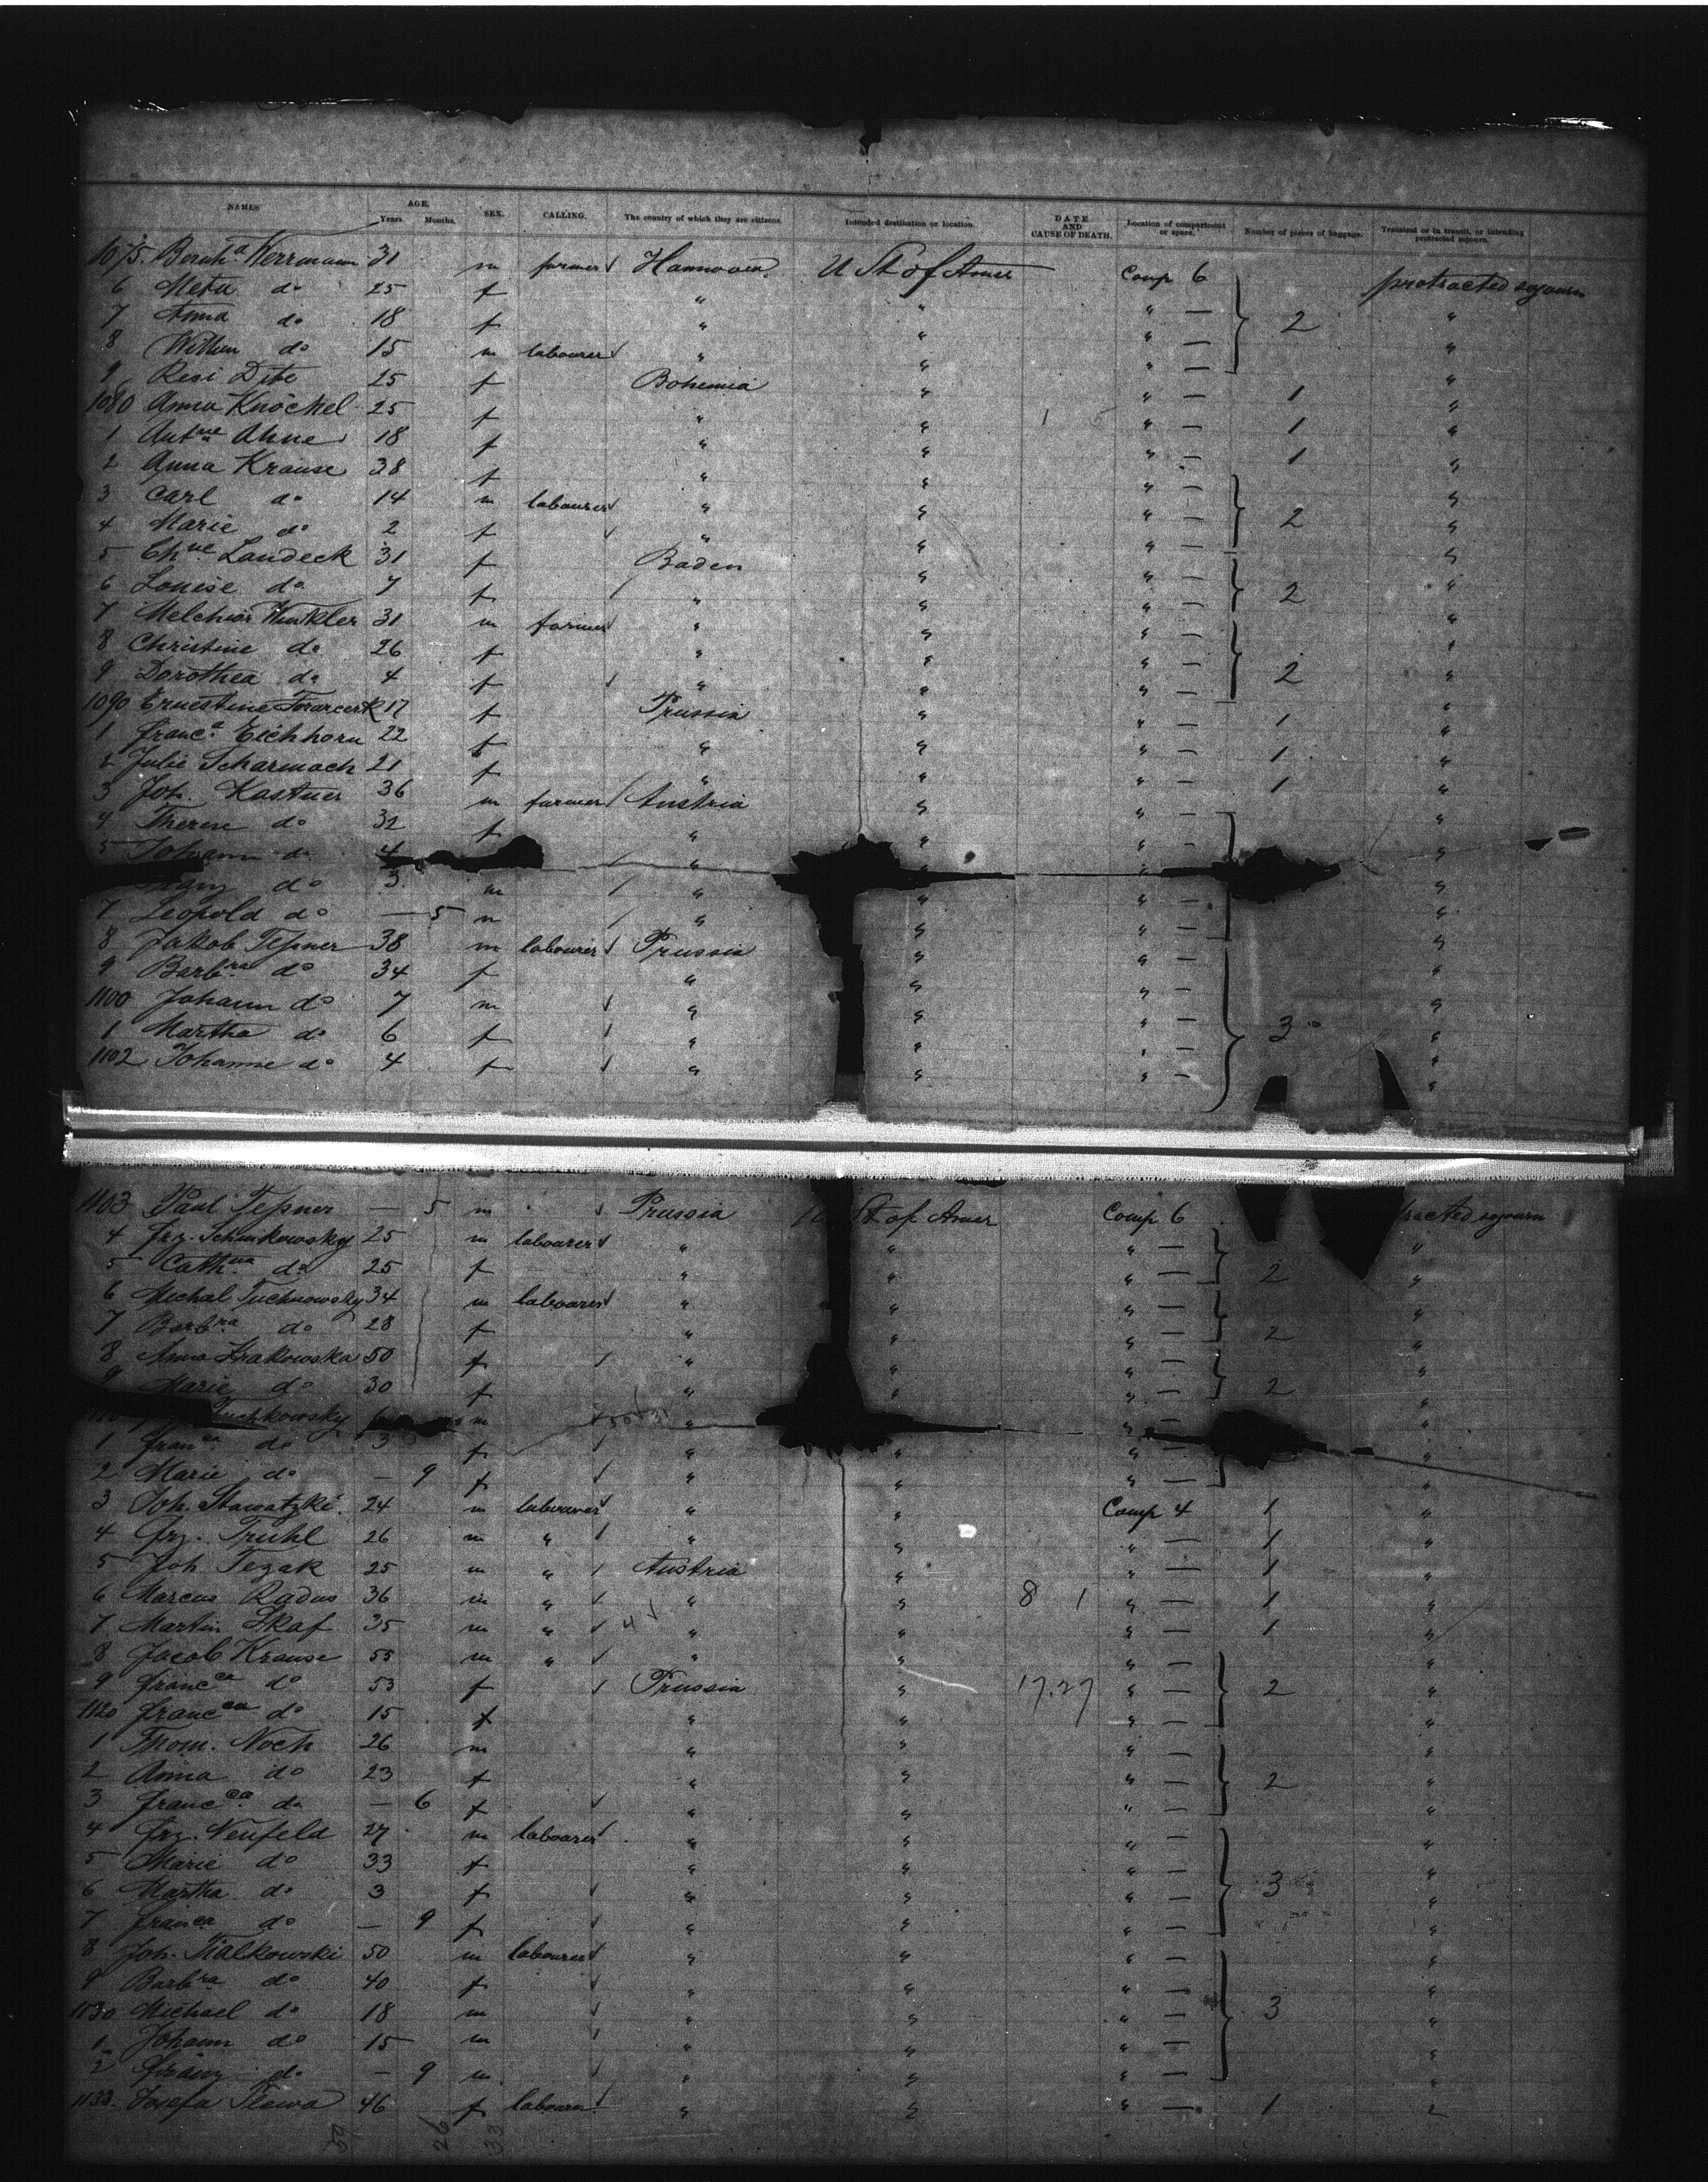 NAMES AGE. Years. Months. SEX. CALLING. The country of which they are citizens. Intended destination or location. DATE AND CAUSE OF DEATH. Location of compartment or space. Number of pieces of baggage. Transient or in transit, or intending protracted sojourn.
1075. Bernhᵃ Werrmann 31 m farmer Hannover U St of Amer Comp 6 protracted sojourn
6 Meta do 25 f " " " — "
7 Anna do 18 f " " " — 2 "
8 Willem do 15 m labourer " " " — "
9 Resi Dite 25 f Bohemia " " — 1 "
1080 Anna Knöchel 25 f " " " — 1 "
1 Antⁿᵉ Ahne 18 f " " " — 1 "
2 Anna Krause 38 f " " " — "
3 Carl do 14 m labourer " " " — 2 "
4 Marie do 2 f " " " — "
5 Chⁿᵉ Landeck 31 f Baden " " — "
6 Louise do 7 f " " " — 2 "
7 Melchior Winkler 31 m farmer " " " — "
8 Christine do 26 f " " " — "
9 Dorothea do 4 f " " " — 2 "
1090 Ernestine 17 f Prussia " " — 1 "
1 Francᵃ Eichhorn 22 f " " " — 1 "
2 Julie Scharmach 21 f " " " — 1 "
3 Joh. Kastner 36 m farmer Austria " " — "
4 Therese do 32 f " " " — "
5 Johann do 4 " " "
Franz do 3 m " " " — "
7 Leopold do — 5 m " " " — "
8 Jakob Teßner 38 m labourer Prussia " " — "
9 Barbʳᵃ do 34 f " " " — "
1100 Johann do 7 m " " " — "
1 Martha do 6 f " " " — 3 "
1102 Johanne do 4 f " " " — "
1103 Paul Teßner — 5 m Prussia St of Amer Comp 6 tracted sojourn
4 Frz. Schinkowsky 25 m labourer " " " — "
5 Cathⁿᵃ do 25 f " " " — 2 "
6 Michal Tuchnowsky 34 m labourer " " " — "
7 Barbʳᵃ do 28 f " " " — 2 "
8 Anna Krakowska 50 f " " " — "
9 Marie do 30 f " " " — 2 "
Tuchkowsky 6 m " " "
1 Francᶜᵃ do 3 f " " " — "
2 Marie do — 9 f " " " — "
3 Joh. Stawatzki 24 m labourer " " Comp 4 1 "
4 Frz. Truhl 26 m " " " " — 1 "
5 Joh Tezak 25 m " Austria " " — 1 "
6 Marcus Radus 36 m " " " 8 1 " — 1 "
7 Martin Skaf 35 m " " " " — 1 "
8 Jacob Krause 55 m " " " " — "
9 Francᶜᵃ do 53 f Prussia " 17.27 " — 2 "
1120 Francᶜᵃ do 15 f " " " — "
1 Thom. Noch 26 m " " " — "
2 Anna do 23 f " " " — 2 "
3 Francᶜᵃ do — 6 f " " " — "
4 Frz. Neufeld 27 m labourer " " " — "
5 Marie do 33 f " " " — "
6 Martha do 3 f " " " — 3 "
7 Franca do — 9 f " " " — "
8 Joh. Tialkowski 50 m labourer " " " — "
9 Barbʳᵃ do 40 f " " " — "
1130 Michael do 18 m " " " — 3 "
1 Johann do 15 m " " " — "
2 Franz do — 9 m " " " — "
1133. Josefa Plewa 46 f labourer " " " — 1 "
26 33